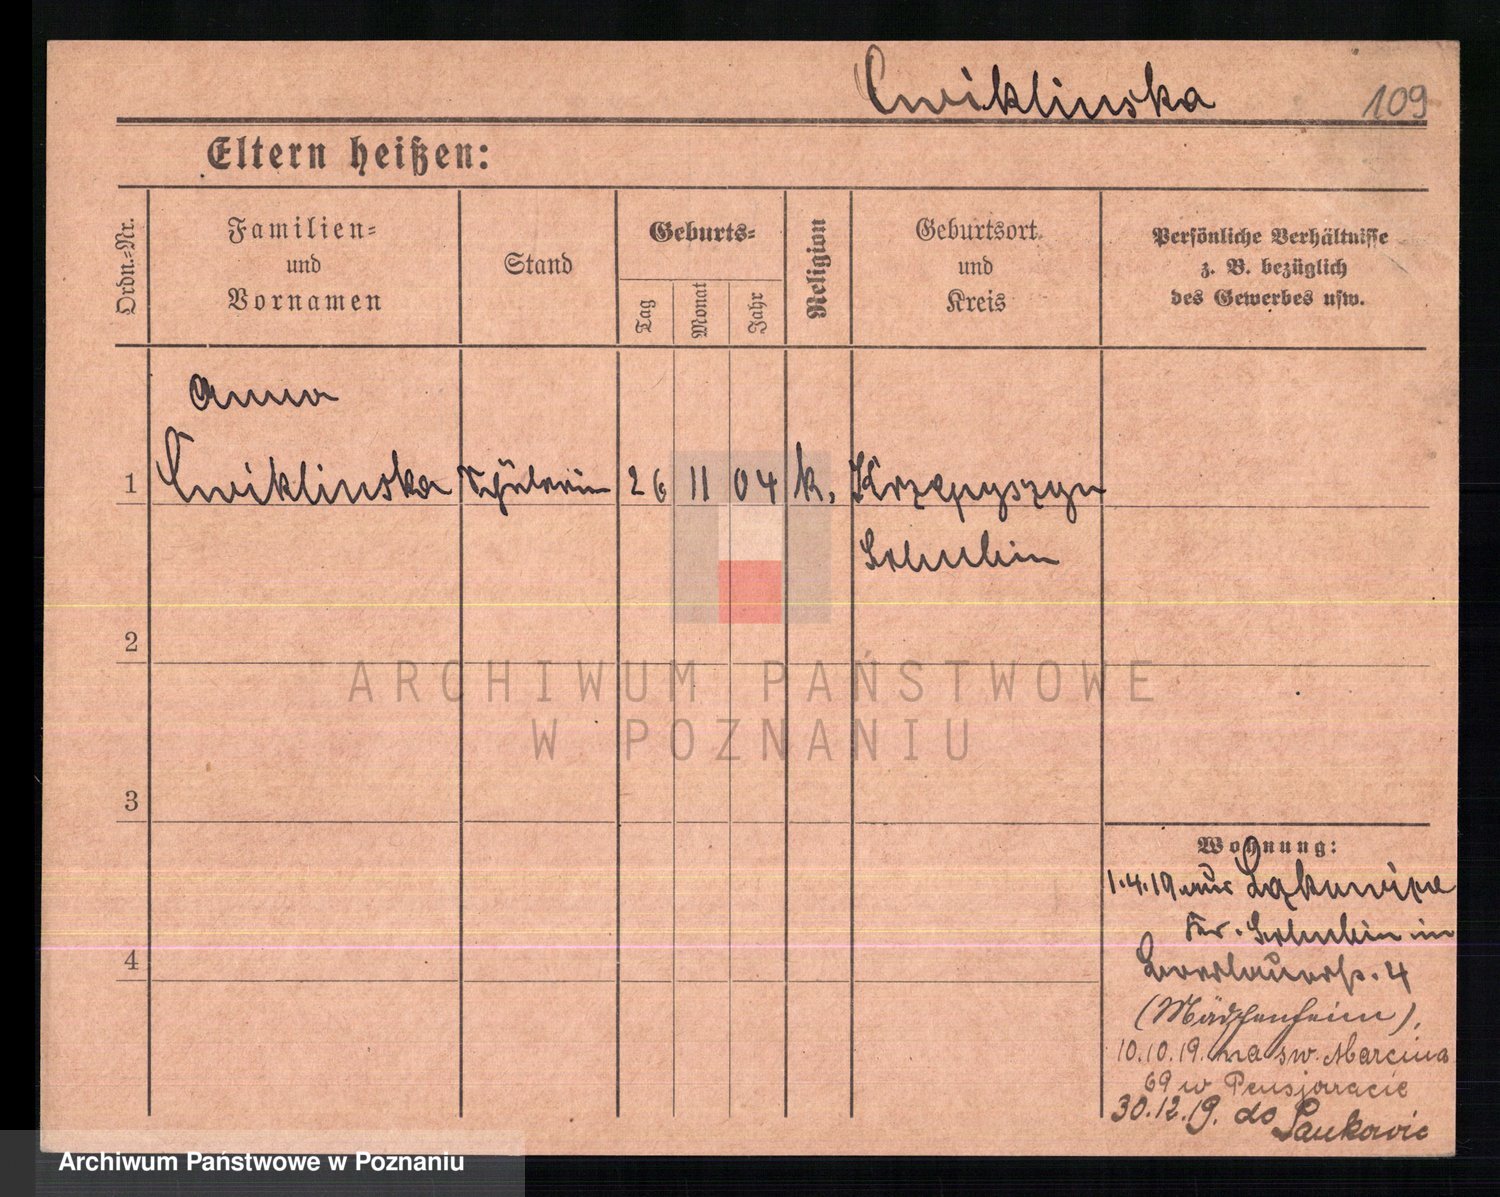 Cwiklinska 109
Eltern heißen:
Ordn.-Nr.
Familien-
und
Vornamen
Stand
Geburts-
Tag
Monat
Jahr
Religion
Geburtsort
und
Kreis
Persönliche Verhältnisse
z. B. bezüglich
des Gewerbes usw.
Anna
1 Cwiklinska Schülerin 26 11 04 k.
Schubin
2
3
4
Wohnung:
1.4.19 aus
Kr. Schubin in
4
(Mädchenheim),
10.10.19. na sw. Marcina
69 w
30.12.19. do
ARCHIWUM PAŃSTWOWE
W POZNANIU
Archiwum Państwowe w Poznaniu